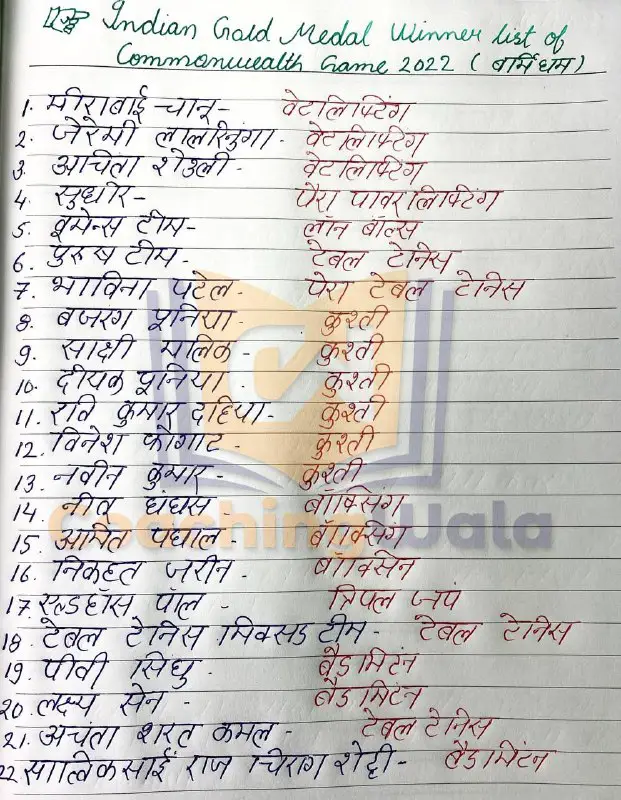 Indian Gold Medal Winner list of
Commonwealth Game 2022 (बर्मिंघम)
1. मीराबाई चानू - वेटलिफ्टिंग
2. जेरेमी लालरिनुंगा - वेटलिफ्टिंग
3. अचिंता शेउली - वेटलिफ्टिंग
4. सुधीर - पैरा पावरलिफ्टिंग
5. वूमेन्स टीम - लॉन बॉल्स
6. पुरुष टीम - टेबल टेनिस
7. भाविना पटेल - पैरा टेबल टेनिस
8. बजरंग पूनिया - कुश्ती
9. साक्षी मालिक - कुश्ती
10. दीपक पूनिया - कुश्ती
11. रवि कुमार दहिया - कुश्ती
12. विनेश फोगाट - कुश्ती
13. नवीन कुमार - कुश्ती
14. नीतू घंघस - बॉक्सिंग
15. अमित पंघाल - बॉक्सिंग
16. निकहत जरीन - बॉक्सिन
17. एल्डहॉस पॉल - त्रिपल जंप
18. टेबल टेनिस मिक्सड टीम - टेबल टेनिस
19. पीवी सिंधु - बैडमिंटन
20. लक्ष्य सेन - बैडमिंटन
21. अचंता शरत कमल - टेबल टेनिस
22. सात्विकसाई राज चिराग शेट्टी - बैडमिंटन
Coaching Wala